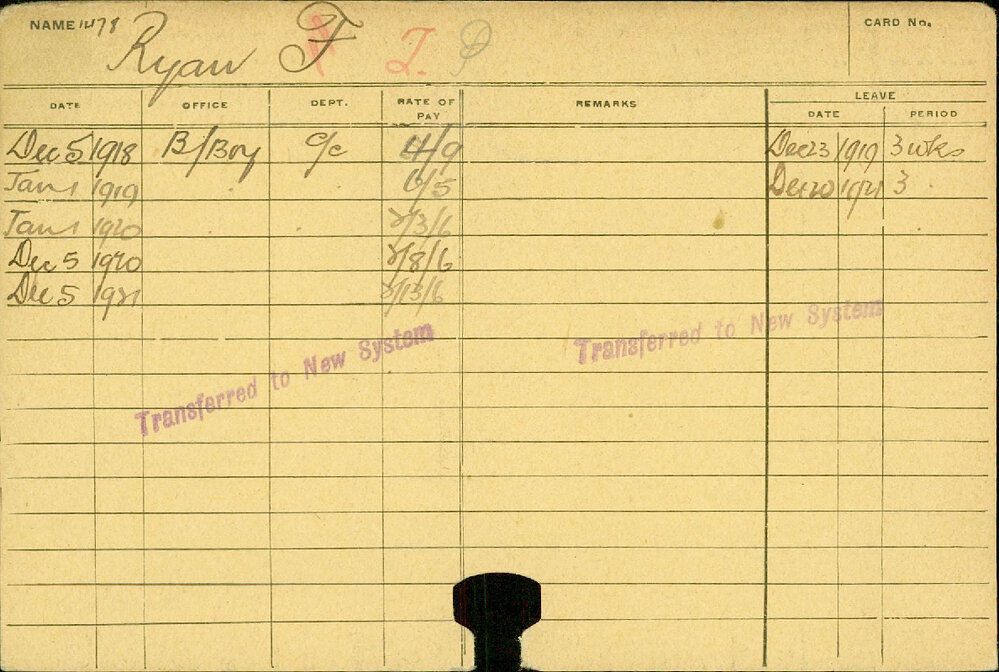 NAME 1478 Ryan F T. P CARD No.
DATE OFFICE DEPT. RATE OF PAY REMARKS LEAVE
DATE PERIOD
Dec 5 1918 B/Boy c/c 4/9 Dec 23 1919 3 wks
Jan 1 1919 6/5 Dec 20 1921 3
Jan 1 1920 2/3/6
Dec 5 1920 2/8/6
Dec 5 1921 2/13/6
Transferred to New System
Transferred to New System